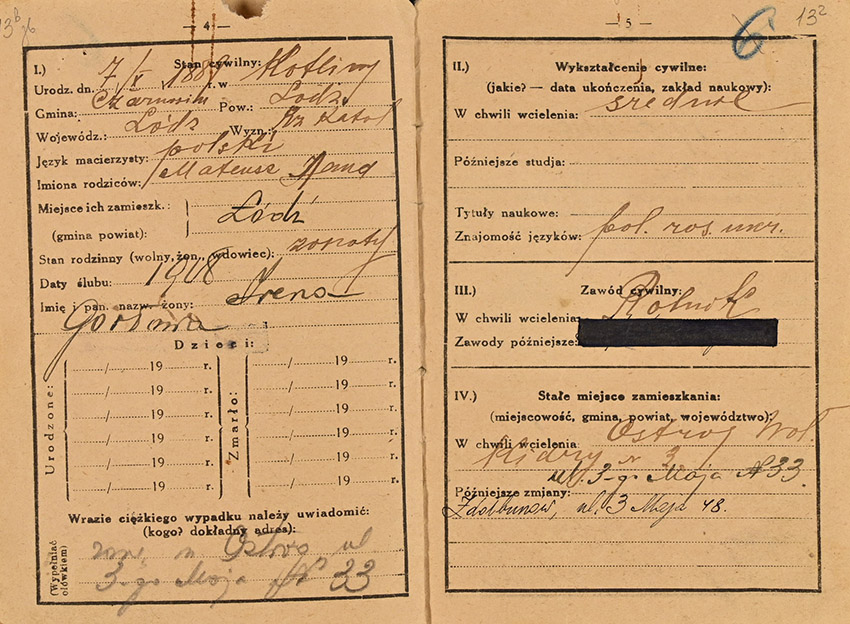 — 4 —
I.) Stan cywilny:
Urodz. dn. 7/X 188 r. w Kotliny
Gmina: Czarnocin Pow.: Łodz
Wojewódz.: Łódz Wyzn.: Rz Katol
Język macierzysty: polski
Imiona rodziców: Mateusz Anna
Miejsce ich zamieszk.: Łódź
(gmina powiat):
Stan rodzinny (wolny, żon., wdowiec): żonaty
Daty ślubu: 1908
Imię i pan. nazw. żony: Irena
Dzieci:
Urodzone:
Zmarło:
...../..........19.......r. ...../..........19.......r.
...../..........19.......r. ...../..........19.......r.
...../..........19.......r. ...../..........19.......r.
...../..........19.......r. ...../..........19.......r.
...../..........19.......r. ...../..........19.......r.
...../..........19.......r. ...../..........19.......r.
Wrazie ciężkiego wypadku należy uwiadomić:
(kogo? dokładny adres):
(Wypełniać ołówkiem)
ul
3-go Maja № 33
— 5 —
6
13²
II.) Wykształcenie cywilne:
(jakie? — data ukończenia, zakład naukowy):
W chwili wcielenia: średnie
Późniejsze studja:
Tytuły naukowe:
Znajomość języków: pol. ros. ukr.
III.) Zawód cywilny:
W chwili wcielenia: Rolnik
Zawody późniejsze:
IV.) Stałe miejsce zamieszkania:
(miejscowość, gmina, powiat, województwo):
W chwili wcielenia: Ostróg Woł.
N 3
ul. 3-go Maja № 33.
Późniejsze zmiany:
Zdołbunów, ul. 3 Maja 48.